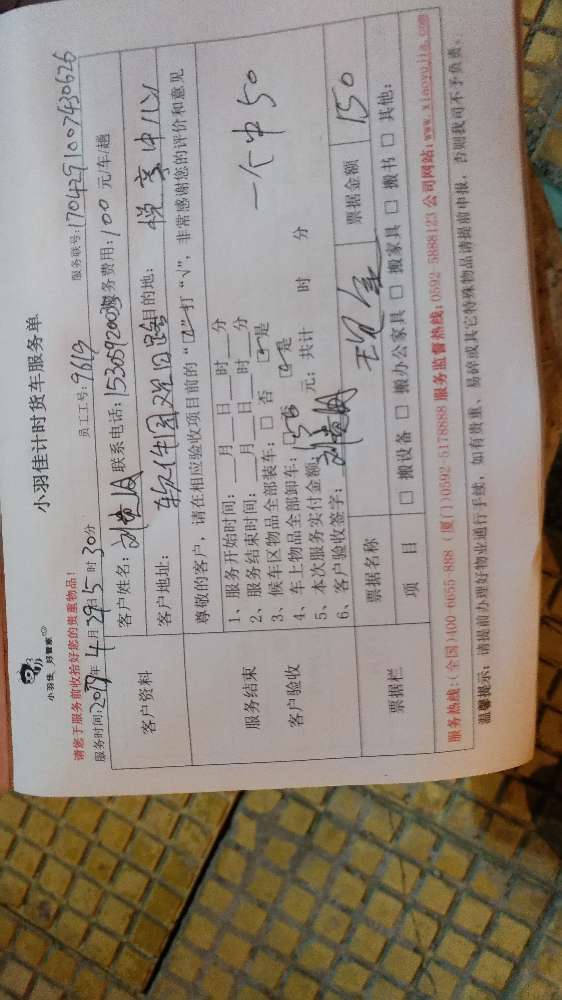 小羽佳 好管家
小羽佳计时货车服务单
请您于服务前收拾好您的贵重物品！
服务时间：2017年4月29日15时30分 员工工号：9619 服务联号：170429100743 0626
客户资料
客户姓名： 联系电话： 服务费用：100 元/车/趟
客户地址：软件园观日路 目的地：
尊敬的客户，请在相应验收项目前的“☑”打“√”，非常感谢您的评价和意见
服务结束
客户验收
1、服务开始时间：___月___日___时___分
2、服务结束时间：___月___日___时___分
3、候车区物品全部装车：□ 否 ☑ 是
4、车上物品全部卸车：□ 否 ☑ 是
5、本次服务实付金额： 元；共计 时 分
6、客户验收签字：
一个中50
票据栏
票据名称 票据金额 150
项 目 □ 搬设备 □ 搬办公家具 □ 搬家具 □ 搬书 □ 其他：
服务热线：(全国)400-6655-888 (厦门)0592-5178888 服务监督热线：0592-5888123 公司网站：www.xiaoyujia.com
温馨提示：请提前办理好物业通行手续，如有贵重、易碎或其它特殊物品请提前申报，否则我司不予负责。